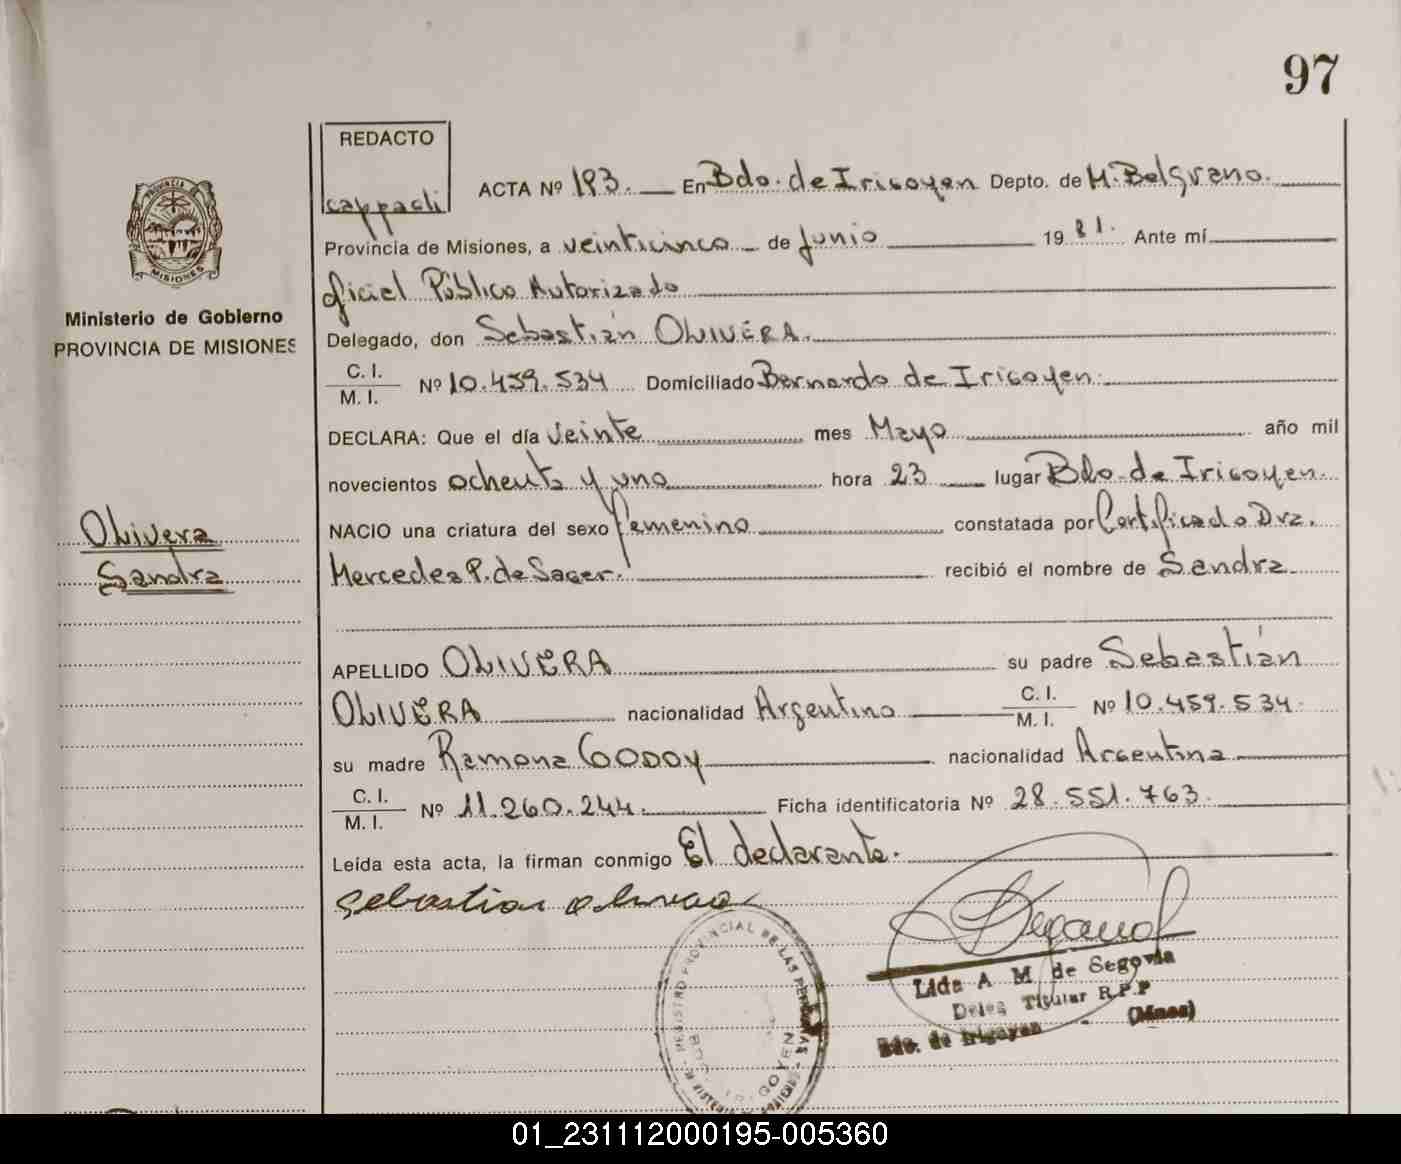 97
REDACTO
cappadi
ACTA Nº 193. En Bdo. de Irigoyen Depto. de M. Belgrano.
Provincia de Misiones, a veinticinco de Junio 1981. Ante mí
Oficial Público Autorizado
Delegado, don Sebastián OLIVERA.
C. I.
M. I. Nº 10.459.534 Domiciliado Bernardo de Irigoyen.
DECLARA: Que el día veinte mes Mayo año mil
novecientos ochenta y uno hora 23 lugar Bdo. de Irigoyen.
NACIO una criatura del sexo femenino constatada por Certificado Dra.
Mercedes P. de Sager. recibió el nombre de Sandra
APELLIDO OLIVERA su padre Sebastián
OLIVERA nacionalidad Argentino C. I.
M. I. Nº 10.459.534.
su madre Ramona GODOY nacionalidad Argentina
C. I.
M. I. Nº 11.260.244. Ficha identificatoria Nº 28.551.763.
Leída esta acta, la firman conmigo El declarante.
Sebastian Olivera
Lida A M de Segovia
Deleg Titular R.P.P
Bdo. de Irigoyen - (Mnes)
REGISTRO PROVINCIAL DE LAS PERSONAS
PROVINCIA DE
MISIONES
Ministerio de Gobierno
PROVINCIA DE MISIONES
Olivera
Sandra
01_231112000195-005360